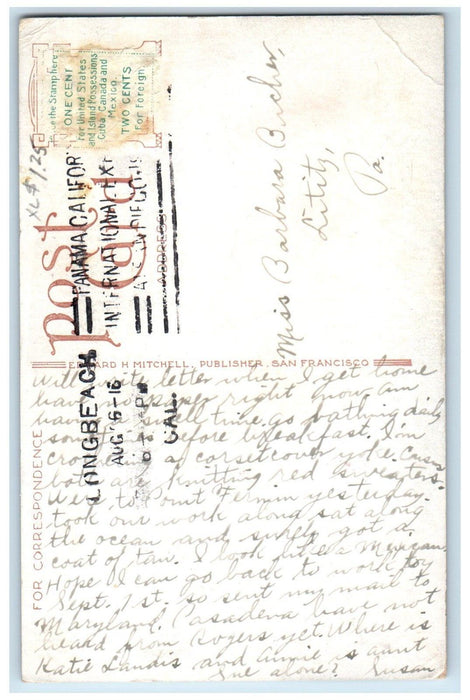 Place the Stamp here
ONE CENT
For United States
and Island Possessions
Cuba, Canada and
Mexico.
TWO CENTS
For Foreign
XL $1.25
Post Card
ADDRESS
PANAMA CALIFOR
INTERNATIONAL EX
SAN DIEGO
LONGBEACH
AUG 6-16
CAL.
Miss Barbara Bucher,
Lititz,
Pa.
EDWARD H MITCHELL, PUBLISHER, SAN FRANCISCO
FOR CORRESPONDENCE
Will write letter when I get home
have no paper right now am
having swell time. go bathing daily
before breakfast. I'm
crocheting a corsetcover yoke.
both are knitting red sweaters.
Were to Point Fermin yesterday.
took our work along sat along
the ocean and surely got a
coat of tan. I look like a Mexican.
Hope I can go back to work by
Sept. 1st. so sent my mail to
Maryland, Pasadena have not
heard from Rogers yet. Where is
Katie Landis and Annie is aunt
Sue alone? Susan